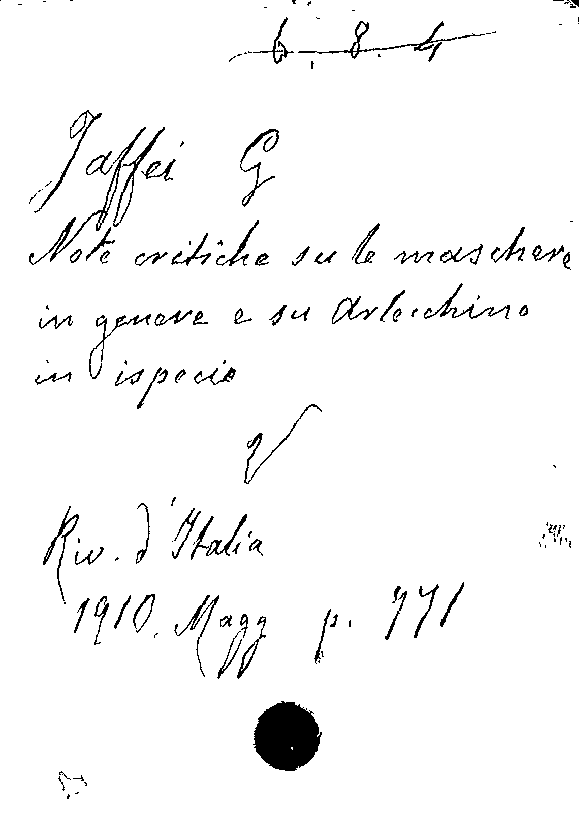 6.8.4
Jaffei G
Note critiche su le maschere
in genere e su Arlecchino
in ispecie
V
Riv. d'Italia
1910. Magg p. 771